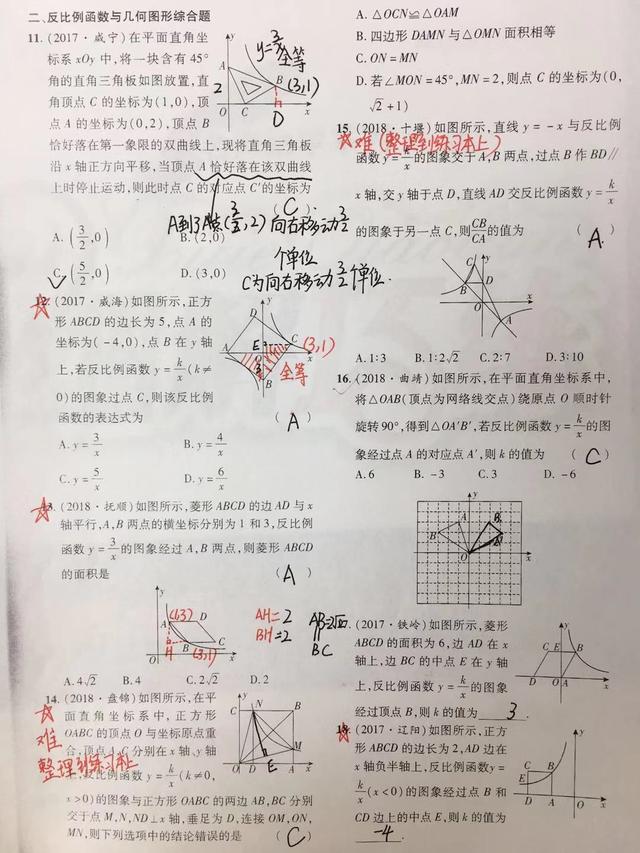 二、反比例函数与几何图形综合题
11. (2017·咸宁)在平面直角坐
标系 xOy 中,将一块含有45°
角的直角三角板如图放置,直
角顶点 C 的坐标为(1,0),顶
点 A 的坐标为(0,2),顶点 B
恰好落在第一象限的双曲线上,现将直角三角板
沿 x 轴正方向平移,当顶点 A 恰好落在该双曲线
上时停止运动,则此时点 C 的对应点 C'的坐标为
( C )
y=3/x
全等
(3,1)
2
D
A到了A点(3/2,2)向右移动3/2
个单位
C为向右移动3/2个单位
A. (3/2,0) B. (2,0)
C. (5/2,0) D. (3,0)
12. (2017·威海)如图所示,正方
形 ABCD 的边长为5,点 A 的
坐标为(-4,0),点 B 在 y 轴
上,若反比例函数 y=k/x(k≠
0)的图象过点 C,则该反比例
函数的表达式为 ( A )
(3,1)
全等
A. y=3/x B. y=4/x
C. y=5/x D. y=6/x
13. (2018·抚顺)如图所示,菱形 ABCD 的边 AD 与 x
轴平行,A,B 两点的横坐标分别为1和3,反比例
函数 y=3/x的图象经过 A,B 两点,则菱形 ABCD
的面积是 ( A )
(1,3)
(3,1)
AH=2
BH=2
AB=2√2
BC
A. 4√2 B. 4 C. 2√2 D. 2
14. (2018·盘锦)如图所示,在平
面直角坐标系中,正方形
OABC 的顶点 O 与坐标原点重
合,顶点 A,C 分别在 x 轴、y 轴
上,反比例函数 y=k/x(k≠0,
x>0)的图象与正方形 OABC 的两边 AB,BC 分别
交于点 M,N,ND⊥x 轴,垂足为 D,连接 OM,ON,
MN,则下列选项中的结论错误的是 ( C )
难
整理到练习本上
A. △OCN≌△OAM
B. 四边形 DAMN 与△OMN 面积相等
C. ON=MN
D. 若∠MON=45°,MN=2,则点 C 的坐标为(0,
√2+1)
15. (2018·十堰)如图所示,直线 y=-x 与反比例
难(整理到练习本上)
函数 y=k/x的图象交于 A,B 两点,过点 B 作 BD∥
x 轴,交 y 轴于点 D,直线 AD 交反比例函数 y=k/x
的图象于另一点 C,则CB/CA的值为 ( A )
A. 1:3 B. 1:2√2 C. 2:7 D. 3:10
16. (2018·曲靖)如图所示,在平面直角坐标系中,
将△OAB(顶点为网络线交点)绕原点 O 顺时针
旋转90°,得到△OA'B',若反比例函数 y=k/x的图
象经过点 A 的对应点 A',则 k 的值为 ( C )
A. 6 B. -3 C. 3 D. -6
(2017·铁岭)如图所示,菱形
ABCD 的面积为6,边 AD 在 x
轴上,边 BC 的中点 E 在 y 轴
上,反比例函数 y=k/x的图象
经过顶点 B,则 k 的值为 3
18. (2017·辽阳)如图所示,正方
形 ABCD 的边长为2,AD 边在
x 轴负半轴上,反比例函数 y=
k/x(x<0)的图象经过点 B 和
CD 边上的中点 E,则 k 的值为
-4.